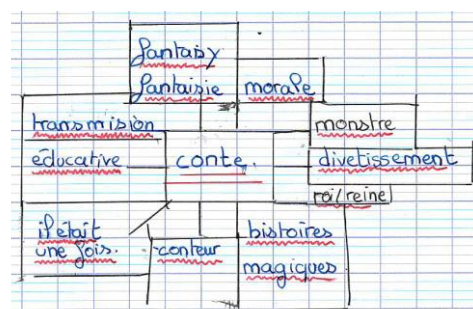 fantasy
fantaisie
morale
transmision
monstre
éducative
conte.
divetissement
roi/reine
il était
une fois.
conteur
histoires
magiques